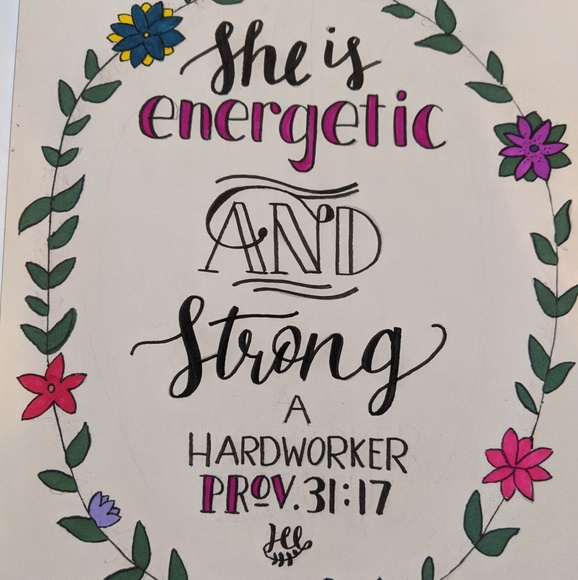 She is
energetic
AND
Strong
A
HARDWORKER
PROV. 31:17